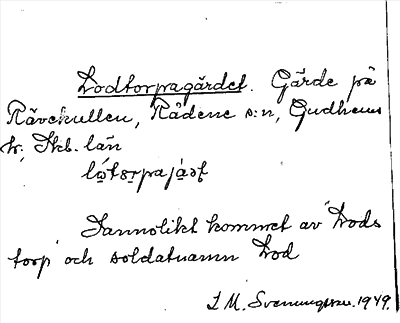 Lodtorpagärdet. Gärde på
Rävekullen, Rådene s:n, Gudhems
h; Skb. län

Sannolikt kommet av "Lods
torp" och soldatnamn Lod
I. M. Svenungsson. 1949.